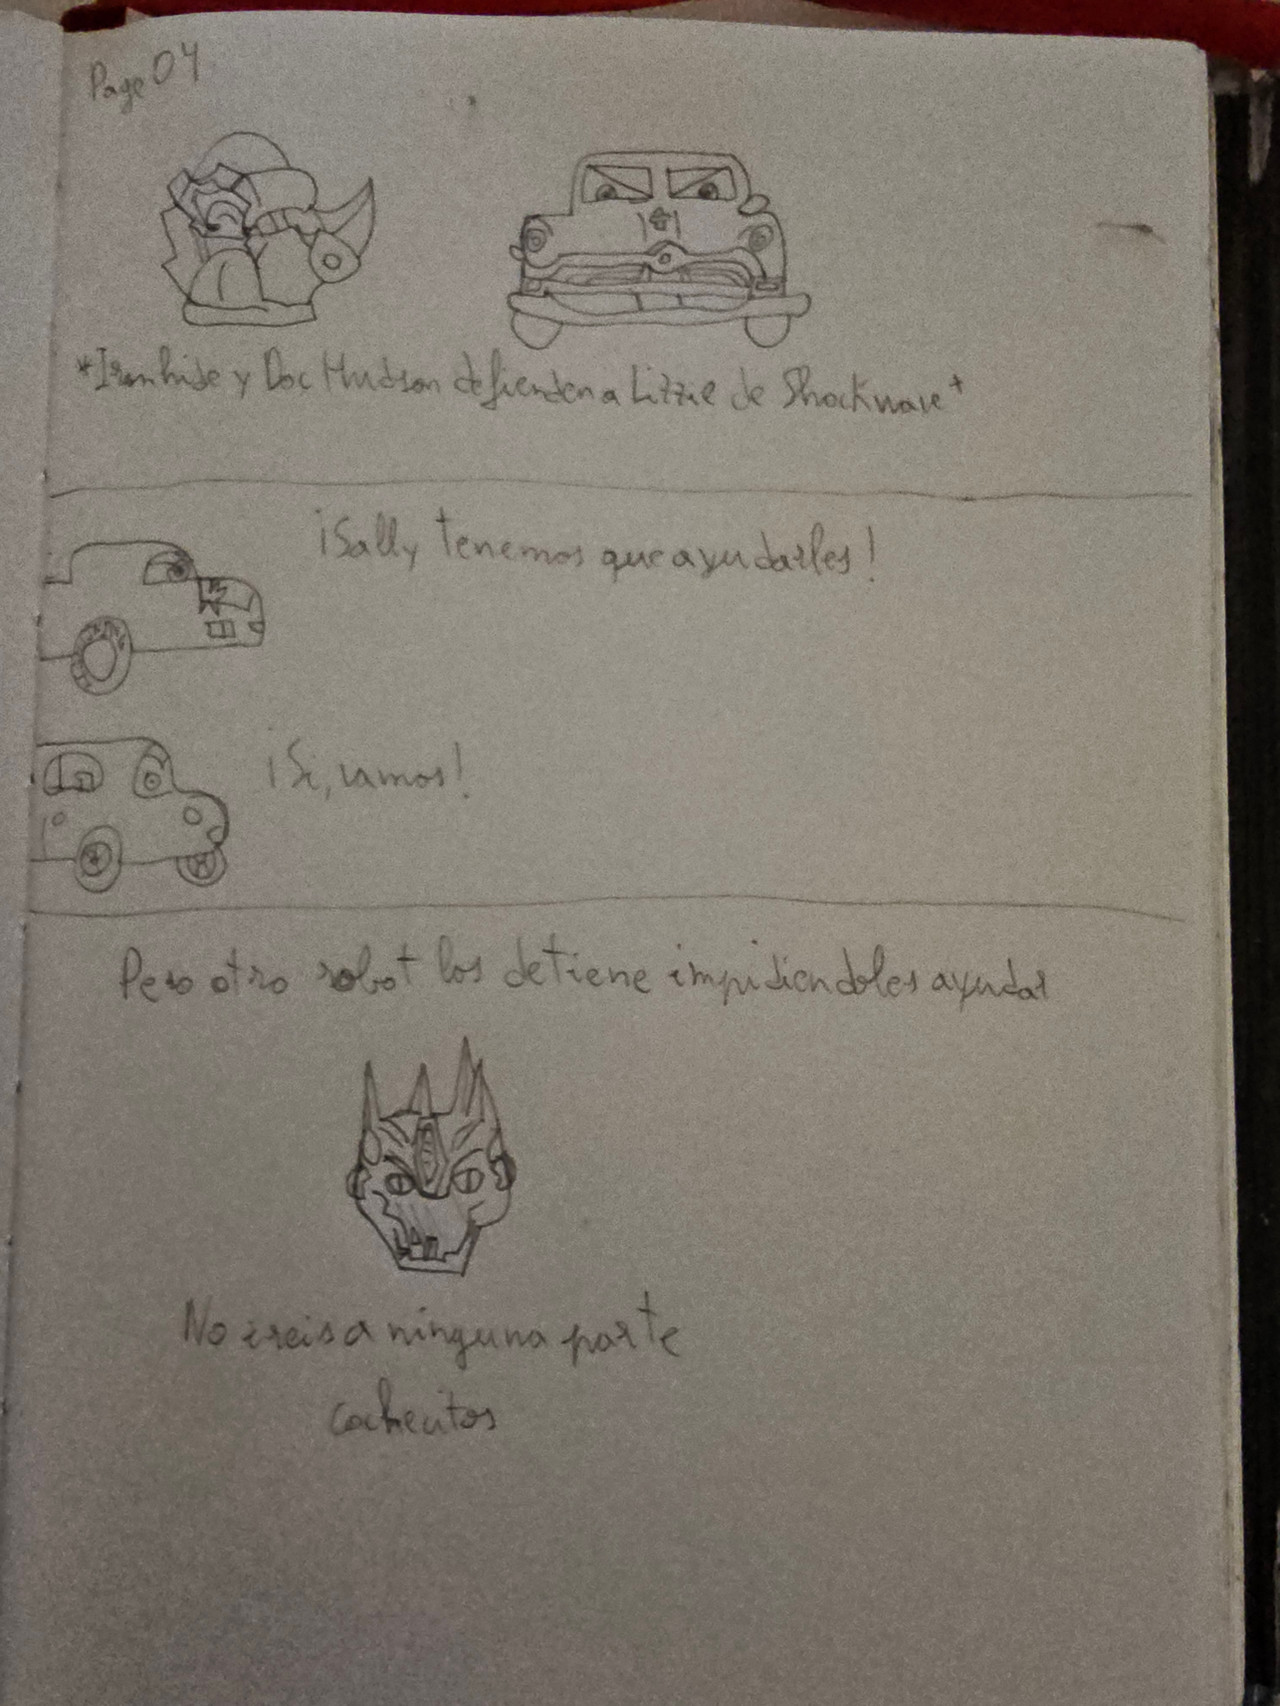 Page 04
*Ironhide y Doc Hudson defienden a Lizzie de Shockwave*
¡Sally tenemos que ayudarles!
¡Si, vamos!
Pero otro robot los detiene impidiendoles ayudar
No ireis a ninguna parte
cochecitos